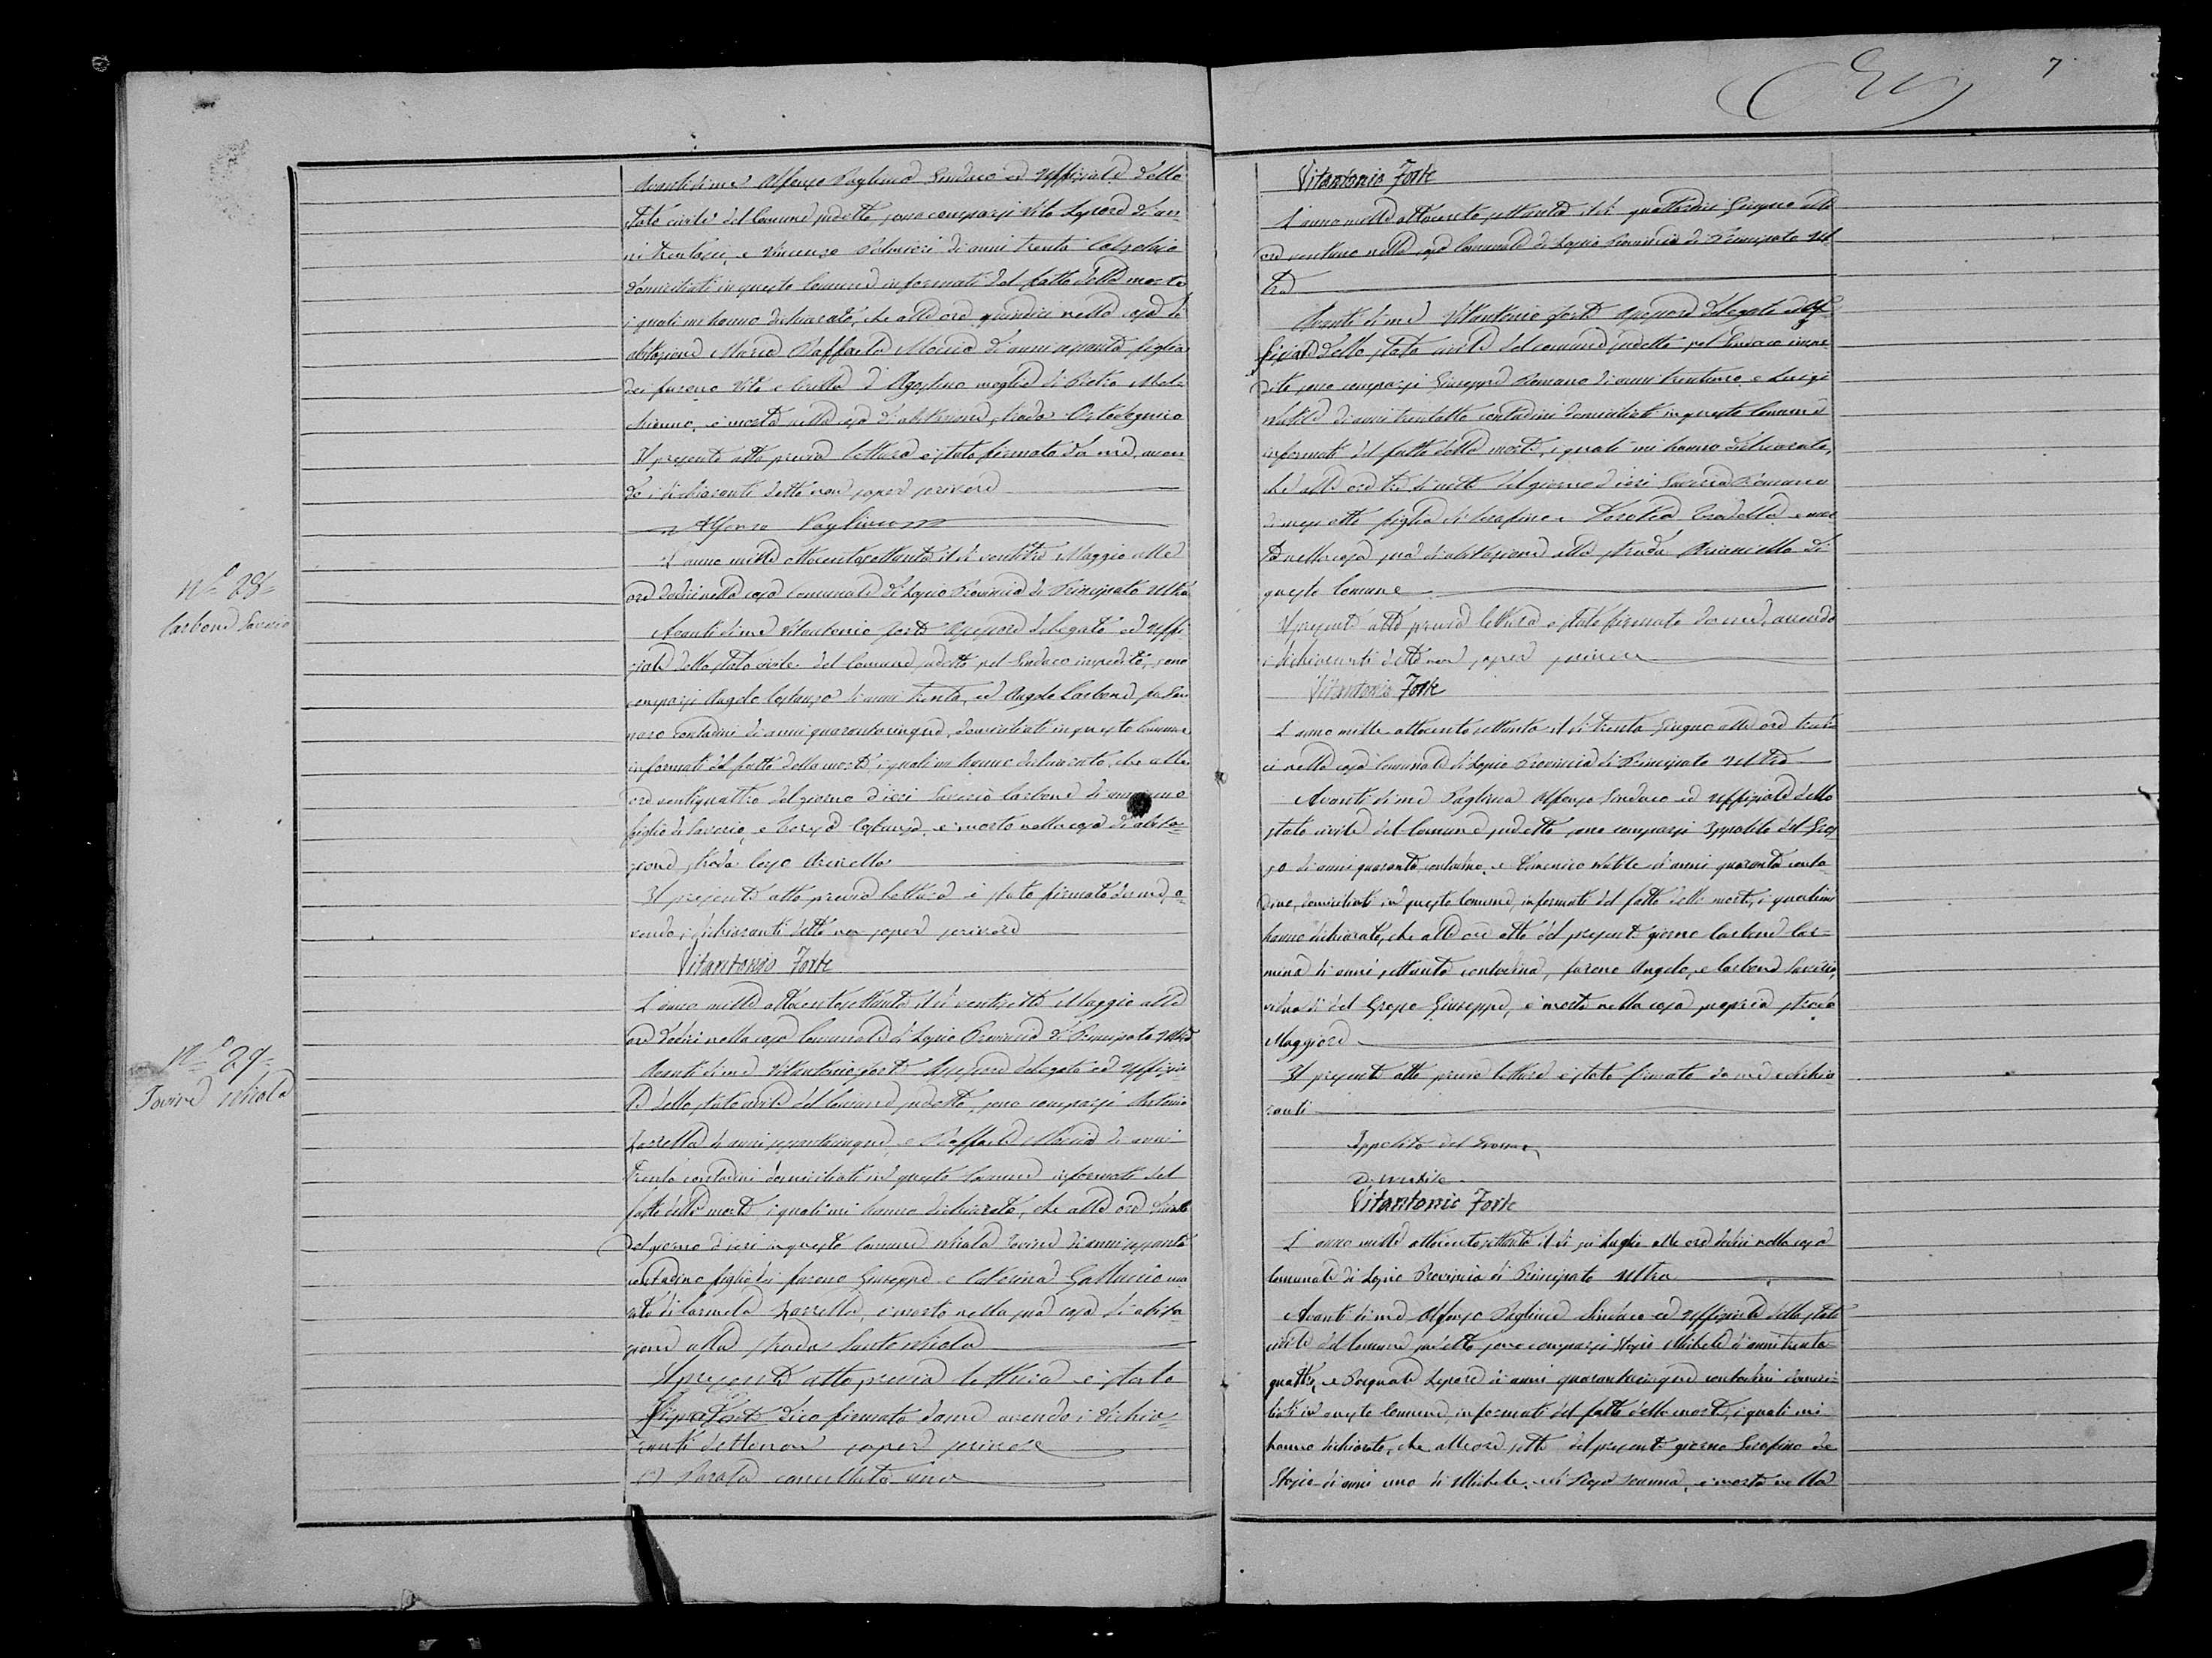 7
Avanti di me Alfonso Pagliuca Sindaco ed Uffiziale dello
stato civile del Comune sudetto, sono comparsi Vito Lepore di an=
ni trentasei, e Vincenzo Palmieri di anni trenta Calzolaio
domiciliati in questo Comune informati del fatto della morte
i quali mi hanno dichiarato, che alle ore quindici nella casa di
abitazione Maria Raffaela Moccia di anni sessanta figlia
dei furono Vito e D'Agostino moglie di Pietro
e morta nella casa d'abitazione, strada
Il presente atto previa lettura è stato firmato da me, aven=
do i dichiaranti detto non saper scrivere
Alfonso Pagliuca
Nº 28=
Carbone Saverio
L'anno mille ottocentosettanta il dì ventitre Maggio alle
ore dodici nella casa Comunale di Lapio Provincia di Principato Ultra
Avanti di me Vitantonio Forte Assessore delegato ed Uffi=
ziale dello stato civile del Comune sudetto pel Sindaco impedito, sono
comparsi Angelo Costanzo di anni trenta, ed Angelo Carbone fu Gen=
naro contadini di anni quarantacinque, domiciliati in questo Comune
informati del fatto della morte, i quali mi hanno dichiarato, che alle
ore ventiquattro del giorno d'ieri Saverio Carbone di anni uno
figlio di Saverio, e Teresa Costanza, e morto nella casa di abita=
zione, strada Arianello
Il presente atto previa lettura è stato firmato da me, a=
vendo i dichiaranti detto non saper scrivere
Vitantonio Forte
Nº 29=
Iovine Nicola
L'anno mille ottocentosettanta il dì ventisette Maggio alle
ore dodici nella casa Comunale di Lapio Provincia di Principato Ultra
Avanti di me Vitantonio Forte Assessore delegato ed Uffizia=
le dello stato civile del Comune sudetto, sono comparsi Antonio
Zarrella di anni sessantacinque, e Raffaele Moccia di anni
trenta contadini domiciliati in questo Comune informati del
fatto della morte, i quali mi hanno dichiarato, che alle ore
del giorno d'ieri in questo Comune Nicola Iovine di anni sessanta
contadino figlio dei furono Giuseppe e Caterina Galluccio ma
rito di Carmela Zarrella, e morto nella sua casa di abita
zione alla strada Santo Nicola
Il presente atto previa lettura è stato
dico firmato da me avendo i dichia=
ranti detto non saper scrivere
Parola cancellata una
Vitantonio Forte
L'anno mille ottocento settanta il dì quattordici Giugno alle
ore ventuno nella casa Comunale di Lapio Provincia di Principato Ul
tra
Avanti di me Vitantonio Forte Assessore delegato ed Uf
fiziale dello stato civile del comune sudetto pel Sindaco impe=
dito, sono comparsi Giuseppe Romano di anni trentuno, e Luigi
Nutile di anni trentotto contadini domiciliati in questo Comune
informati del fatto della morte, i quali mi hanno dichiarato,
che alle ore tre di notte del giorno d'ieri Saveria Romano
di mesi otto figlia di Serafino e Tradella e mor
ta nella casa sua di abitazione alla strada Arianiello di
questo Comune
Il presente atto previa lettura è stato firmato da me, avendo
i dichiaranti detto non saper scrivere
Vitantonio Forte
L'anno mille ottocento settanta il dì trenta Giugno alle ore tredi=
ci nella casa Comunale di Lapio Provincia di Principato Ultra
Avanti di me Pagliuca Alfonso Sindaco ed Uffiziale dello
stato civile del Comune sudetto sono comparsi Ippolito del Gros
so di anni quaranta contadino, e Domenico Nutile di anni quaranta conta=
dino, domiciliati in questo Comune, informati del fatto della morte, i quali mi
hanno dichiarato, che alle ore otto del presente giorno Carbone Car=
mina di anni settanta contadina, furono Angelo, e Carbone Saveria,
vedova di del Grosso Giuseppe, è morta nella casa propria strada
Maggiore
Il presente atto previa lettura è stato firmato da me e dichia
ranti
Ippolito del Grosso
D. Nutile
Vitantonio Forte
L'anno mille ottocento settanta il dì sei Luglio alle ore dodici nella casa
Comunale di Lapio Provincia di Principato Ultra
Avanti di me Alfonso Pagliuca Sindaco ed Uffiziale dello stato
civile del Comune sudetto sono comparsi Stasio Michele di anni trenta=
quattro, e Pasquale Lepore di anni quarantacinque contadini domici=
liati in questo Comune, informati del fatto della morte, i quali mi
hanno dichiarato, che alle ore sette del presente giorno Serafino de
Stasio di anni uno di Michele, e di Rosa, è morto nella